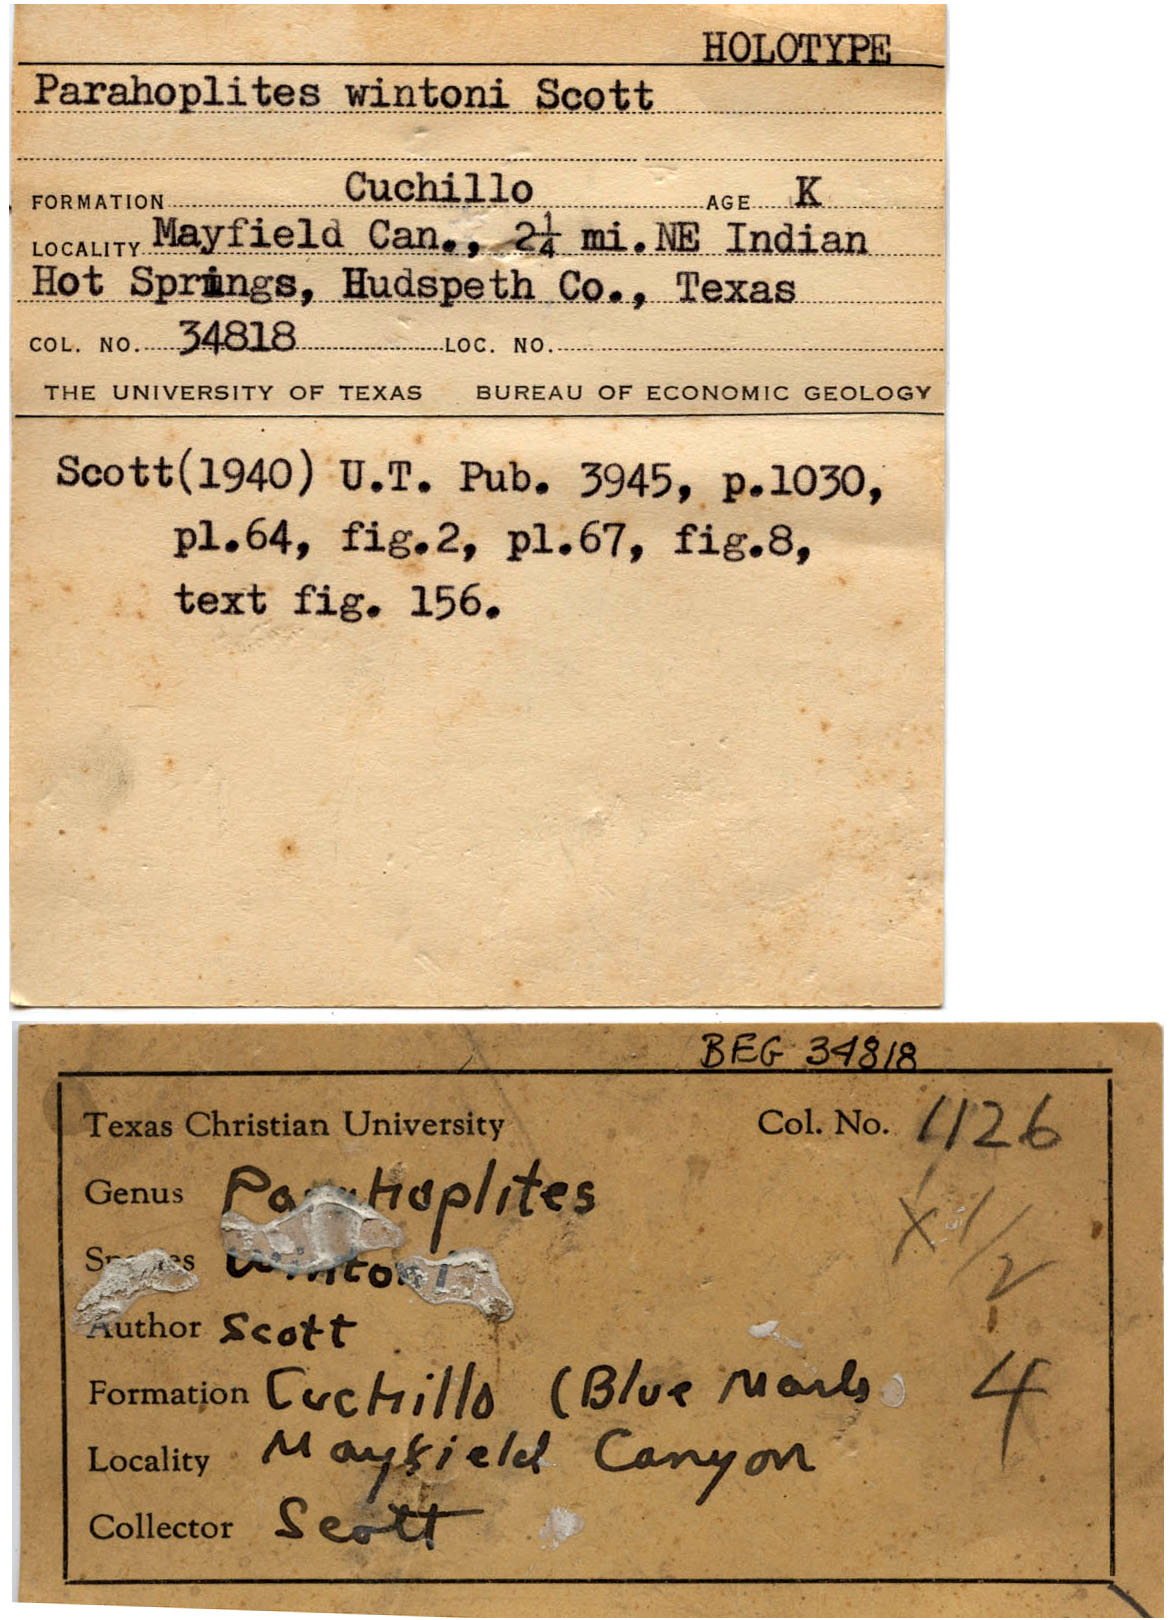 HOLOTYPE
Parahoplites wintoni Scott
FORMATION Cuchillo AGE K
LOCALITY Mayfield Can., 2¼ mi. NE Indian
Hot Springs, Hudspeth Co., Texas
COL. NO. 34818 LOC. NO.
THE UNIVERSITY OF TEXAS BUREAU OF ECONOMIC GEOLOGY
Scott(1940) U.T. Pub. 3945, p.1030,
pl.64, fig.2, pl.67, fig.8,
text fig. 156.
BEG 34818
Texas Christian University Col. No. 1126
Genus Parahoplites
x 1/2
Species Wintoni
Author Scott
Formation Cuchillo (Blue Marls 4
Locality Mayfield Canyon
Collector Scott